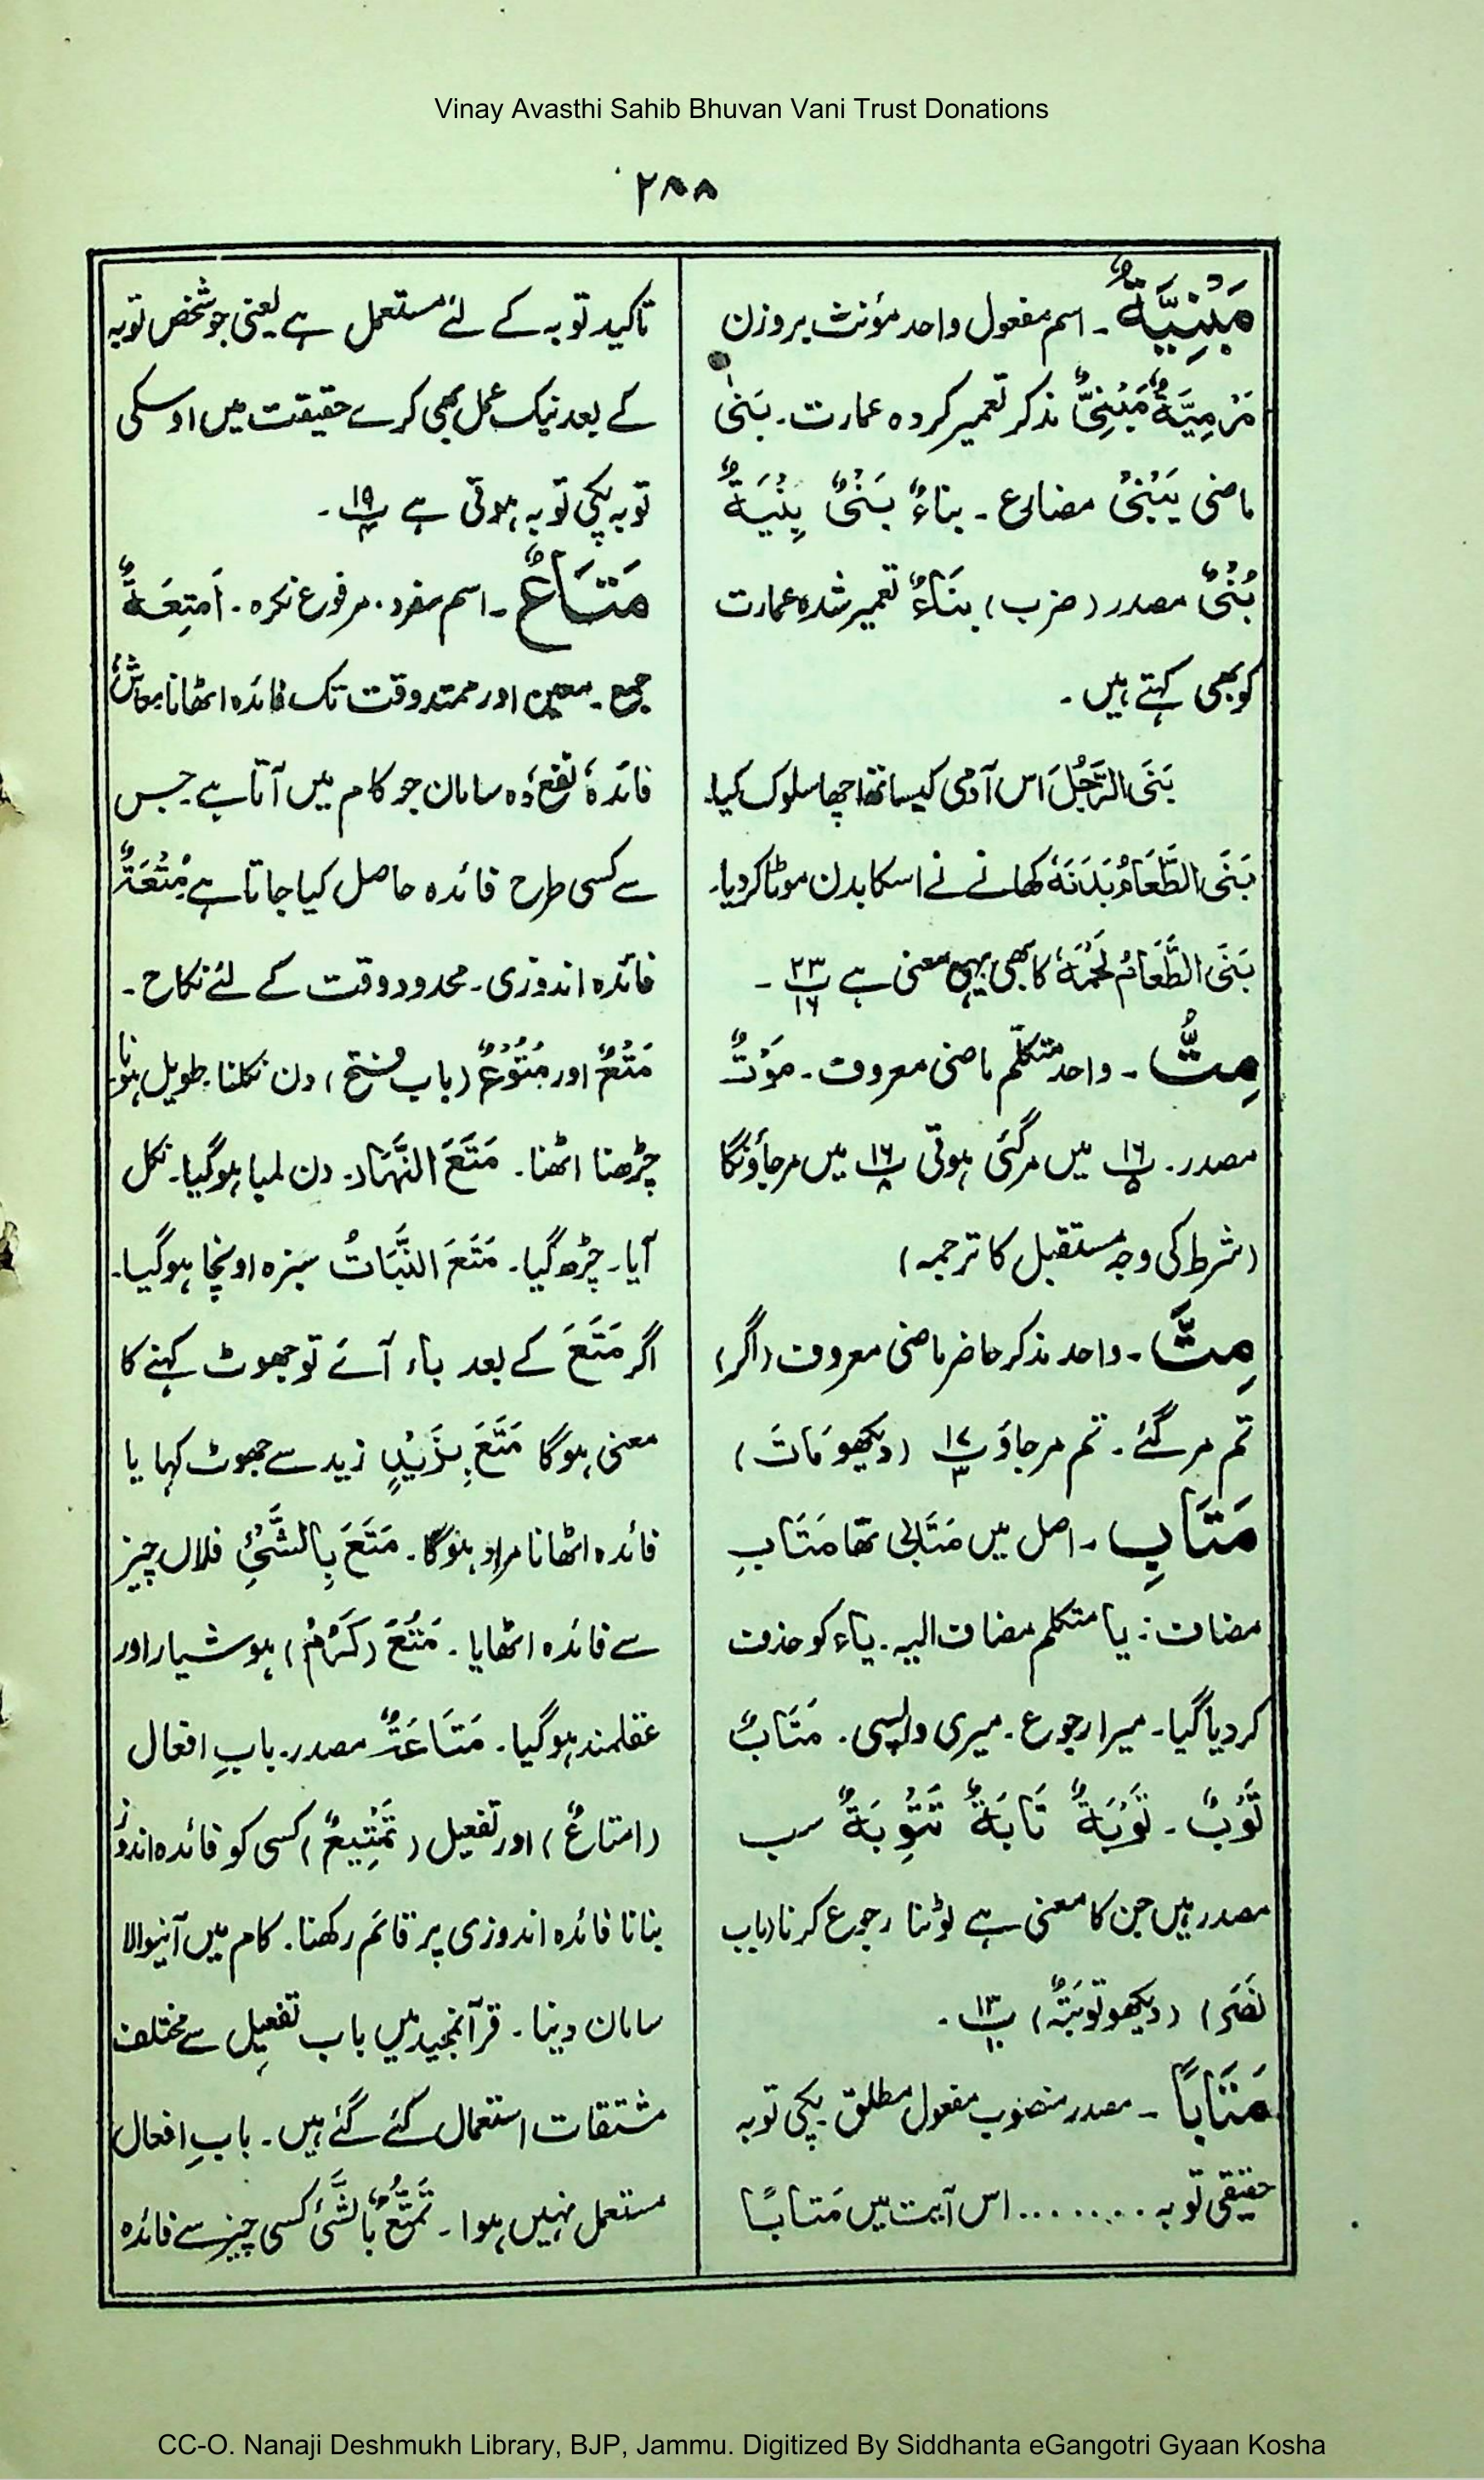 Vinay Avasthi Sahib Bhuvan Vani Trust Donations
۲۸۸
مَبْنِيَّةٌ۔ اسم مفعول واحد مؤنث بروزن
مَرْمِيَّةٌ مَبْنِىٌّ مذکر تعمیر کردہ عمارت۔ بَنٰى
ماضی يَبْنِىْ مضارع۔ بناءٌ بَنْىٌ بِنْيَةٌ
بُنْىٌ مصدر (ضرب) بِنَاءٌ تعمیر شدہ عمارت
کو بھی کہتے ہیں۔
بَنَى الرَّجُلَ اس آدمی کیساتھ اچھا سلوک کیا۔
بَنَى الطَّعَامُ بَدَنَهٗ کھانے نے اسکا بدن موٹا کردیا۔
بَنَى الطَّعَامُ لَحْمَهٗ کا بھی یہی معنی ہے پ۲۳/۱۶ ۔
مِتُّ۔ واحد متکلّم ماضی معروف۔ مَوْتٌ
مصدر۔ پ۱۶/۵ میں مرگئی ہوتی پ۱۶/۸ میں مرجاؤنگا
(شرط کی وجہ مستقبل کا ترجمہ)
مِتَّ۔ واحد مذکر حاضر ماضی معروف (اگر)
تم مرگئے۔ تم مرجاؤ پ۱۷/۳ (دیکھو مَاتَ)
مَتَابِ۔ اصل میں مَتَابِی تھا مَتَابِ
مضاف: یا متکلم مضاف الیہ۔ یاء کو حذف
کردیا گیا۔ میرا رجوع۔ میری واپسی۔ مَتَابٌ
تَوْبٌ۔ تَوْبَةٌ تَابَةٌ تَتْوِبَةٌ سب
مصدر ہیں جن کا معنی ہے لوٹنا رجوع کرنا (باب
نَصَرَ) (دیکھو تَوْبَةٌ) پ۱۳/۱۰ ۔
مَتَابًا۔ مصدر منصوب مفعول مطلق پکی توبہ
حقیقی توبہ ........ اس آیت میں مَتَابًا
تاکید توبہ کے لئے مستعمل ہے یعنی جو شخص توبہ
کے بعد نیک عمل بھی کرے حقیقت میں اوسکی
توبہ پکی توبہ ہوتی ہے پ۱۹/۴ ۔
مَتَاعٌ۔ اسم مفرد۔ مرفوع نکرہ۔ اَمْتِعَةٌ
جمع۔ معین اور ممتد وقت تک فائدہ اٹھانا معاش
فائدہ، نفع، وہ سامان جو کام میں آتا ہے۔ جس
سے کسی طرح فائدہ حاصل کیا جاتا ہے مُتْعَةٌ
فائدہ اندوزی۔ محدود وقت کے لئے نکاح۔
مَتْعٌ اور مُتُوْعٌ (باب فتح) دن نکلنا۔ طویل ہونا
چڑھنا اٹھنا۔ مَتَعَ النَّهَار۔ دن لمبا ہوگیا۔ نکل
آیا۔ چڑھ گیا۔ مَتَعَ النَّبَاتُ سبزہ اونچا ہوگیا۔
اگر مَتَعَ کے بعد باء آئے تو جھوٹ کہنے کا
معنی ہوگا مَتَعَ بِزَيْدٍ زید سے جھوٹ کہا یا
فائدہ اٹھانا مراد ہوگا۔ مَتَعَ بِالشَّئْ فلاں چیز
سے فائدہ اٹھایا۔ مَتُعَ (كَرُمَ) ہوشیار اور
عقلمند ہوگیا۔ مَتَاعَةٌ مصدر۔ بابِ افعال
(امتاعٌ) اور تفعیل (تَمْتِيعٌ) کسی کو فائدہ اندوز
بنانا فائدہ اندوزی پر قائم رکھنا۔ کام میں آنیوالا
سامان دینا۔ قرآنمجید میں باب تفعیل سے مختلف
مشتقات استعمال کئے گئے ہیں۔ بابِ افعال
مستعمل نہیں ہوا۔ تَمَتُّعٌ بالشَّئ کسی چیز سے فائدہ
CC-O. Nanaji Deshmukh Library, BJP, Jammu. Digitized By Siddhanta eGangotri Gyaan Kosha